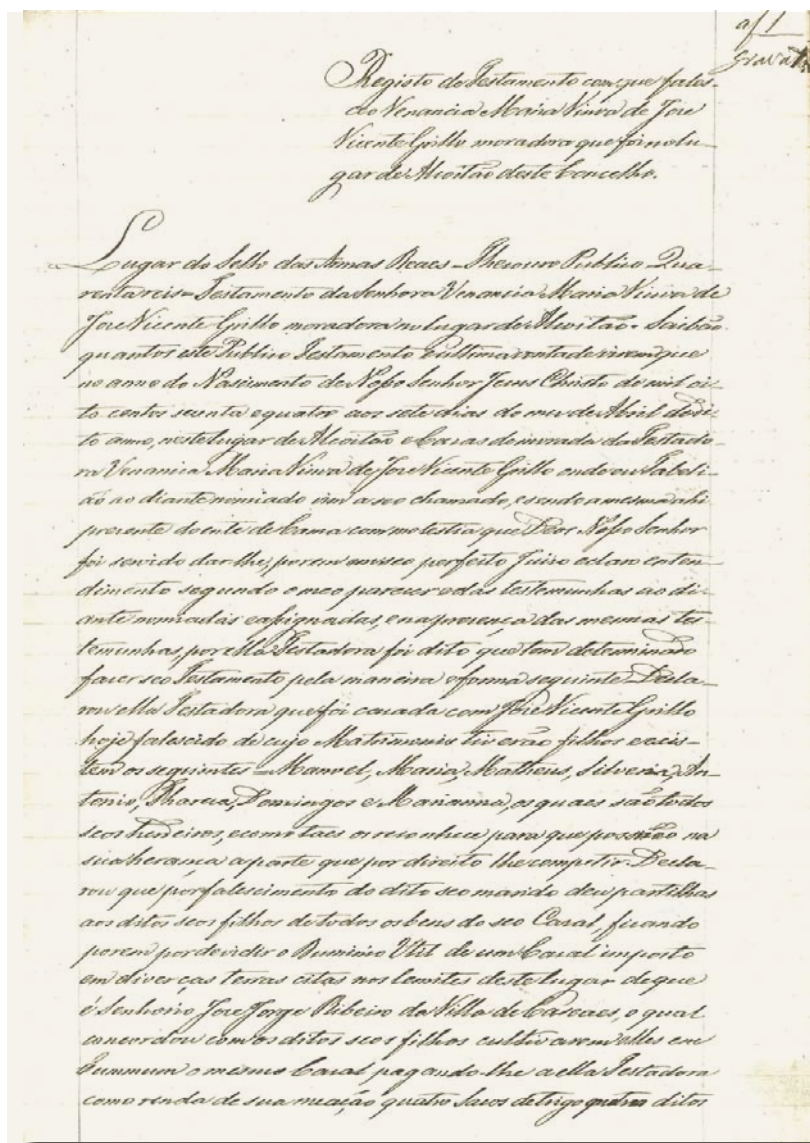 af 1
Gravato
Registo do Testamento com que fales-
ceo Venancia Maria Viuva de Jose
Vicente Grillo moradora que foi no lu-
gar de Alcoitão deste Concelho.
Lugar do Sello das Armas Reaes – Thesouro Publico – Qua-
renta reis – Testamento da Senhora Venancia Maria Viuva de
Jose Vicente Grillo moradora no lugar de Alcoitão – Saibão
quantos este Publico Testamento e ultima vontade virem que
no anno do Nascimento de Nosso Senhor Jesus Christo de mil oi-
to centos secenta e quatro aos sete dias do mez de Abril do di-
to anno, neste lugar de Alcoitão e Cazas de morada da Testado-
ra Venancia Maria Viuva de Jose Vicente Grillo onde eu Tabeli-
ão ao diante nomiado vim a seo chamado, e sendo a mesma ahi
prezente doente de Cama com molestia que Deos Nosso Senhor
foi servido dar-lhe, porem em seo perfeito Juizo e claro enten-
dimento segundo o meo parecer e das testemunhas ao di-
ante nomiadas e assignadas, e na prezença das mesmas tes-
temunhas, por ella Testadora foi dito que tem determinado
fazer seo Testamento pela maneira e forma seguinte – Decla-
rou ella Testadora que foi cazada com Jose Vicente Grillo
hoje falescido de cujo Matrimonio tiverão filhos e exis-
tem os seguintes – Manoel, Maria, Matheus, Silveria, An-
tonio, Thareza, Domingos e Marianna, os quaes são todos
seos herdeiros, e como taes os reconhece para que possão na
sua herança a parte que por direito lhe competir. Decla-
rou que por falescimento do dito seo marido deu partilhas
aos ditos seos filhos de todos os bens do seo Cazal, ficando
porem por devidir o Duminio Util de um Cazal imposto
em diverças terras citas nos lemites deste lugar de que
é Senhorio Jose Jorge Ribeiro da Villa de Cascaes, o qual
concordou com os ditos seos filhos cultivarem elles em
Cummum o mesmo Cazal, pagando-lhe a ella Testadora
como renda de sua meação quatro sacos de trigo quatro ditos